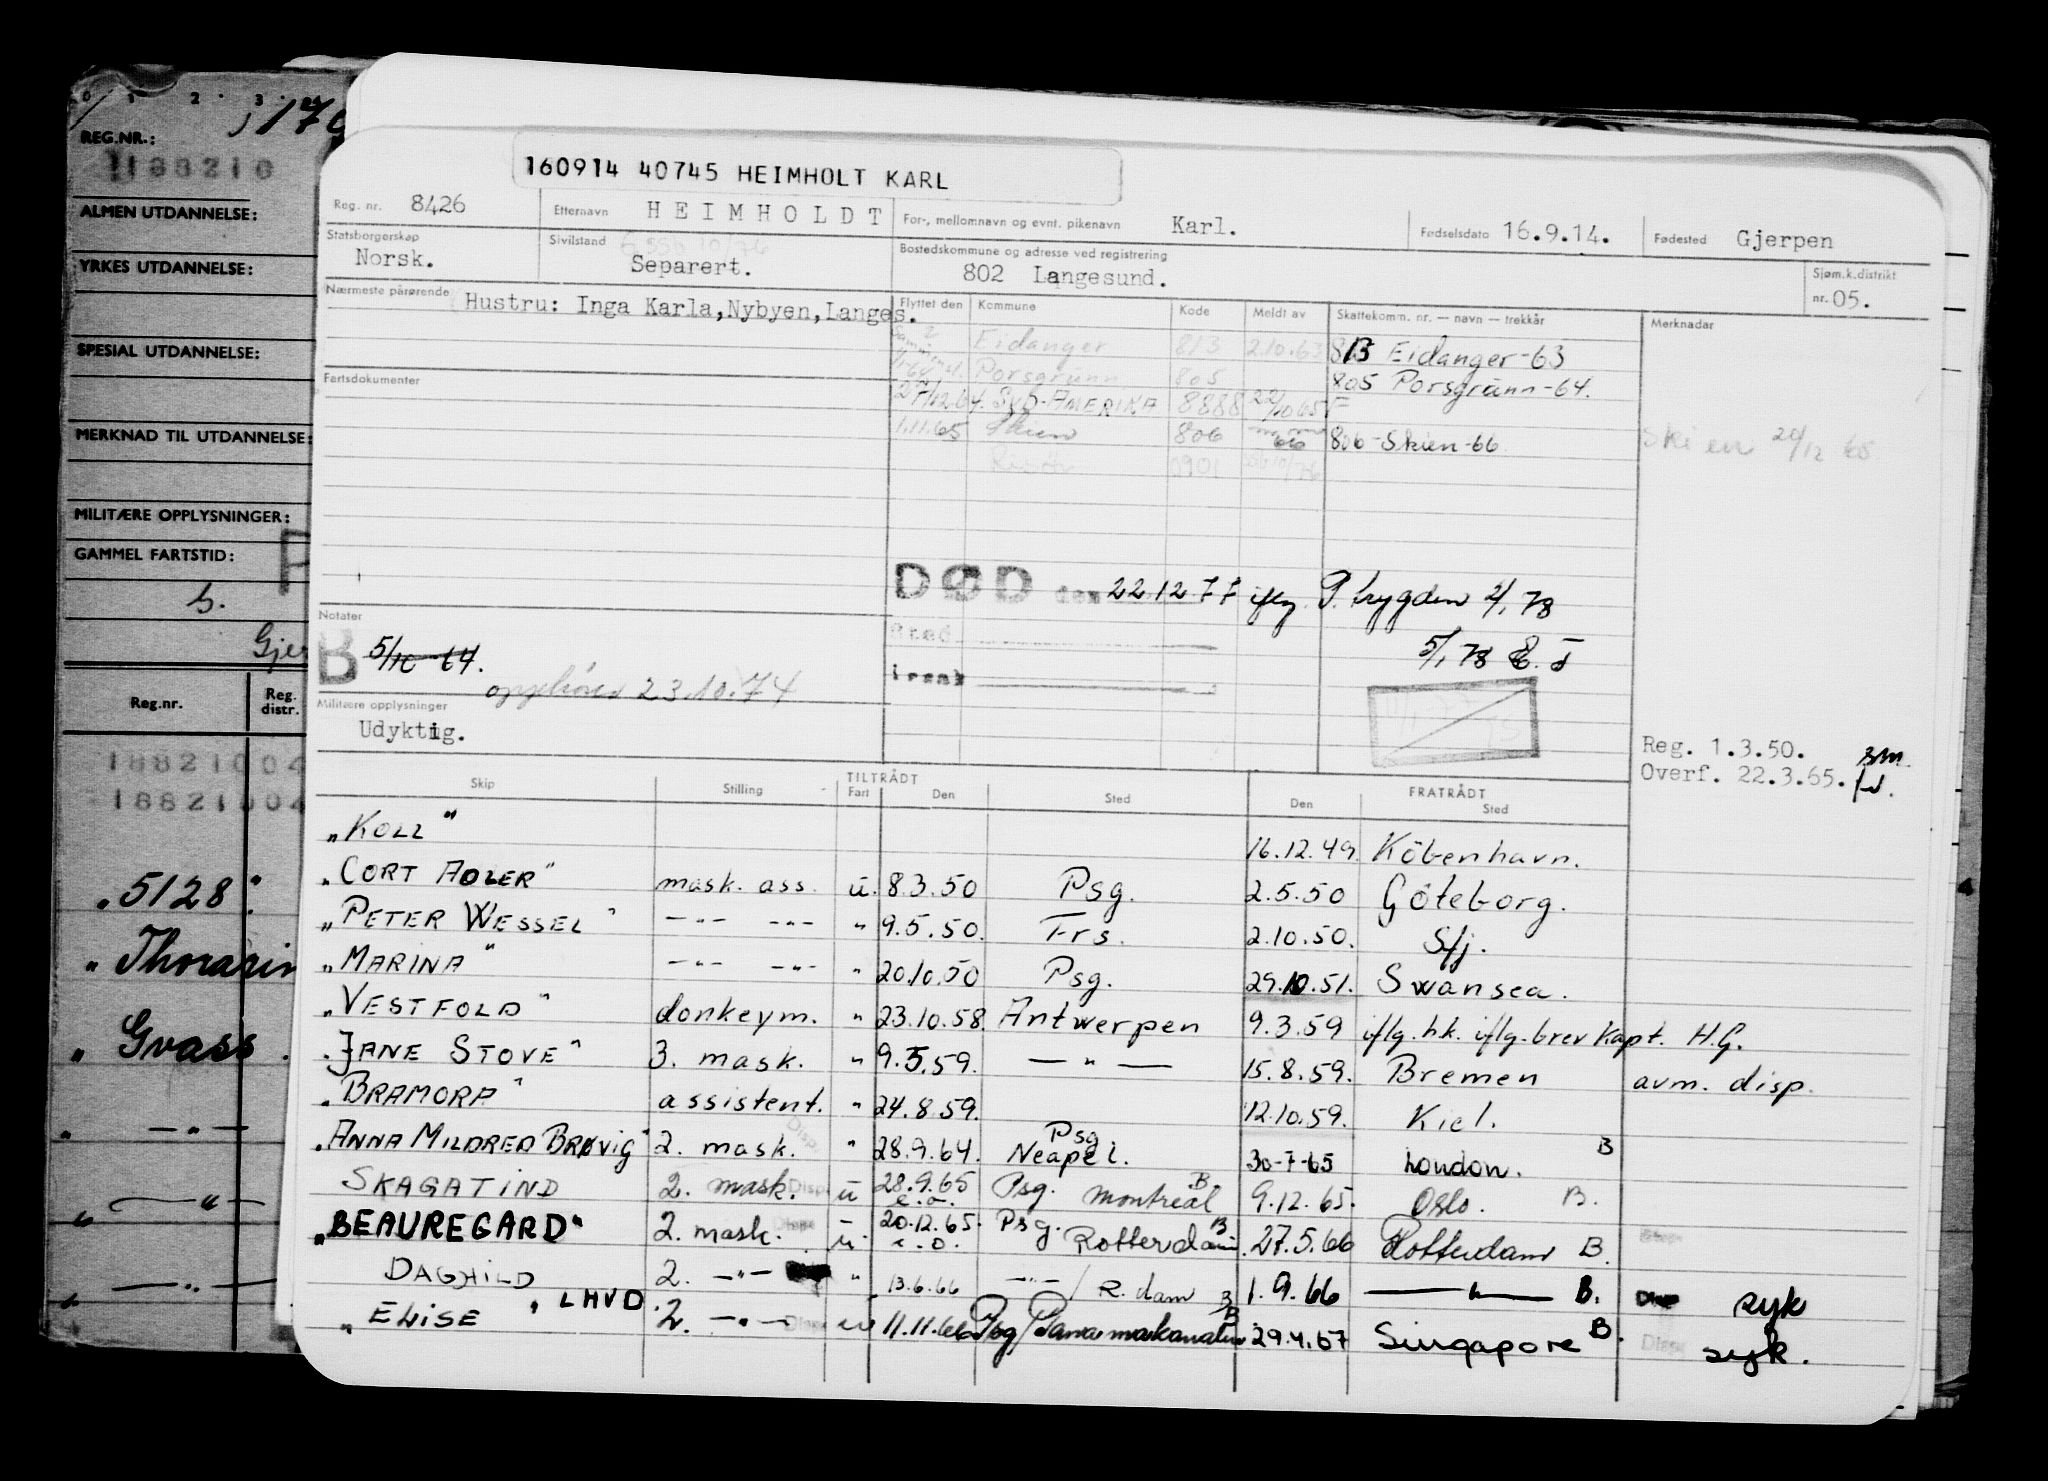 REG.NR.:
188210
ALMEN UTDANNELSE:
YRKES UTDANNELSE:
SPESIAL UTDANNELSE:
MERKNAD TIL UTDANNELSE:
MILITÆRE OPPLYSNINGER:
GAMMEL FARTSTID:
Reg.nr. Reg. distr.
18821004
18821004
"5128"
" Thorasin
" Gvass
160914 40745 HEIMHOLT KARL
Reg. nr. 8426 Etternavn HEIMHOLDT For-, mellomnavn og evnt. pikenavn Karl. Fødselsdato 16.9.14. Fødested Gjerpen
Statsborgerskap Norsk. Sivilstand Separert. Bostedskommune og adresse ved registrering 802 Langesund. Sjøm.k.distrikt nr. 05.
Nærmeste pårørende Hustru: Inga Karla,Nybyen,Langes.
Flyttet den Kommune Kode Meldt av Skattekomm. nr. — navn — trekkår Merknader
Eidanger 813 2.10.63 813 Eidanger-63
Porsgrunn 805 805 Porsgrunn-64.
Fartsdokumenter
SYD-AMERIKA 8888 22/10 65 F
1.11.65 Skien 806 66 806-Skien-66 Skien 20/12 65
0901
DØD den 22.12.77 iflg. P. trygden 2/1 78
5/1 78
sted
Notater
B 5/10-64.
opphører 23.10.74
Militære opplysninger
Udyktig.
Reg. 1.3.50.
Overf. 22.3.65.
Skip Stilling TILTRÅDT Fart Den Sted FRATRÅDT Den Sted
"KOLL" 16.12.49. Köbenhavn.
"CORT ADLER" mask. ass. u. 8.3.50 Psg. 2.5.50 Göteborg.
"PETER WESSEL" —"— —"— " 9.5.50. Frs. 2.10.50. Sfj.
"MARINA" —"— —"— " 20.10.50 Psg. 29.10.51. Swansea.
"VESTFOLD" donkeym. " 23.10.58. Antwerpen 9.3.59 iflg. hk. iflg. brev Kapt. H.G.
"JANE STOVE" 3. mask. " 9.5.59. —"— 15.8.59. Bremen avm. disp.
"BRAMORA" assistent. " 24.8.59. 12.10.59. Kiel.
"ANNA MILDRED BRØVIG" 2. mask. " 28.9.64. Psg Neapel. 30-7-65 London. B
SKAGATIND 2. mask. Disp u 28.9.65 Psg. Montreal B 9.12.65. Oslo. B.
"BEAUREGARD" 2. mask. u. 20.12.65. Psg. Rotterdam B 27.5.66 Rotterdam B
DAGHILD 2. —"— " 13.6.66 —"— / R.dam B 1.9.66 —"— B. syk
" ELISE " LHVD 2. —"— Disp u 11.11.66 Psg/Panamakanalen B 29.4.67 Singapore B. Disp syk.